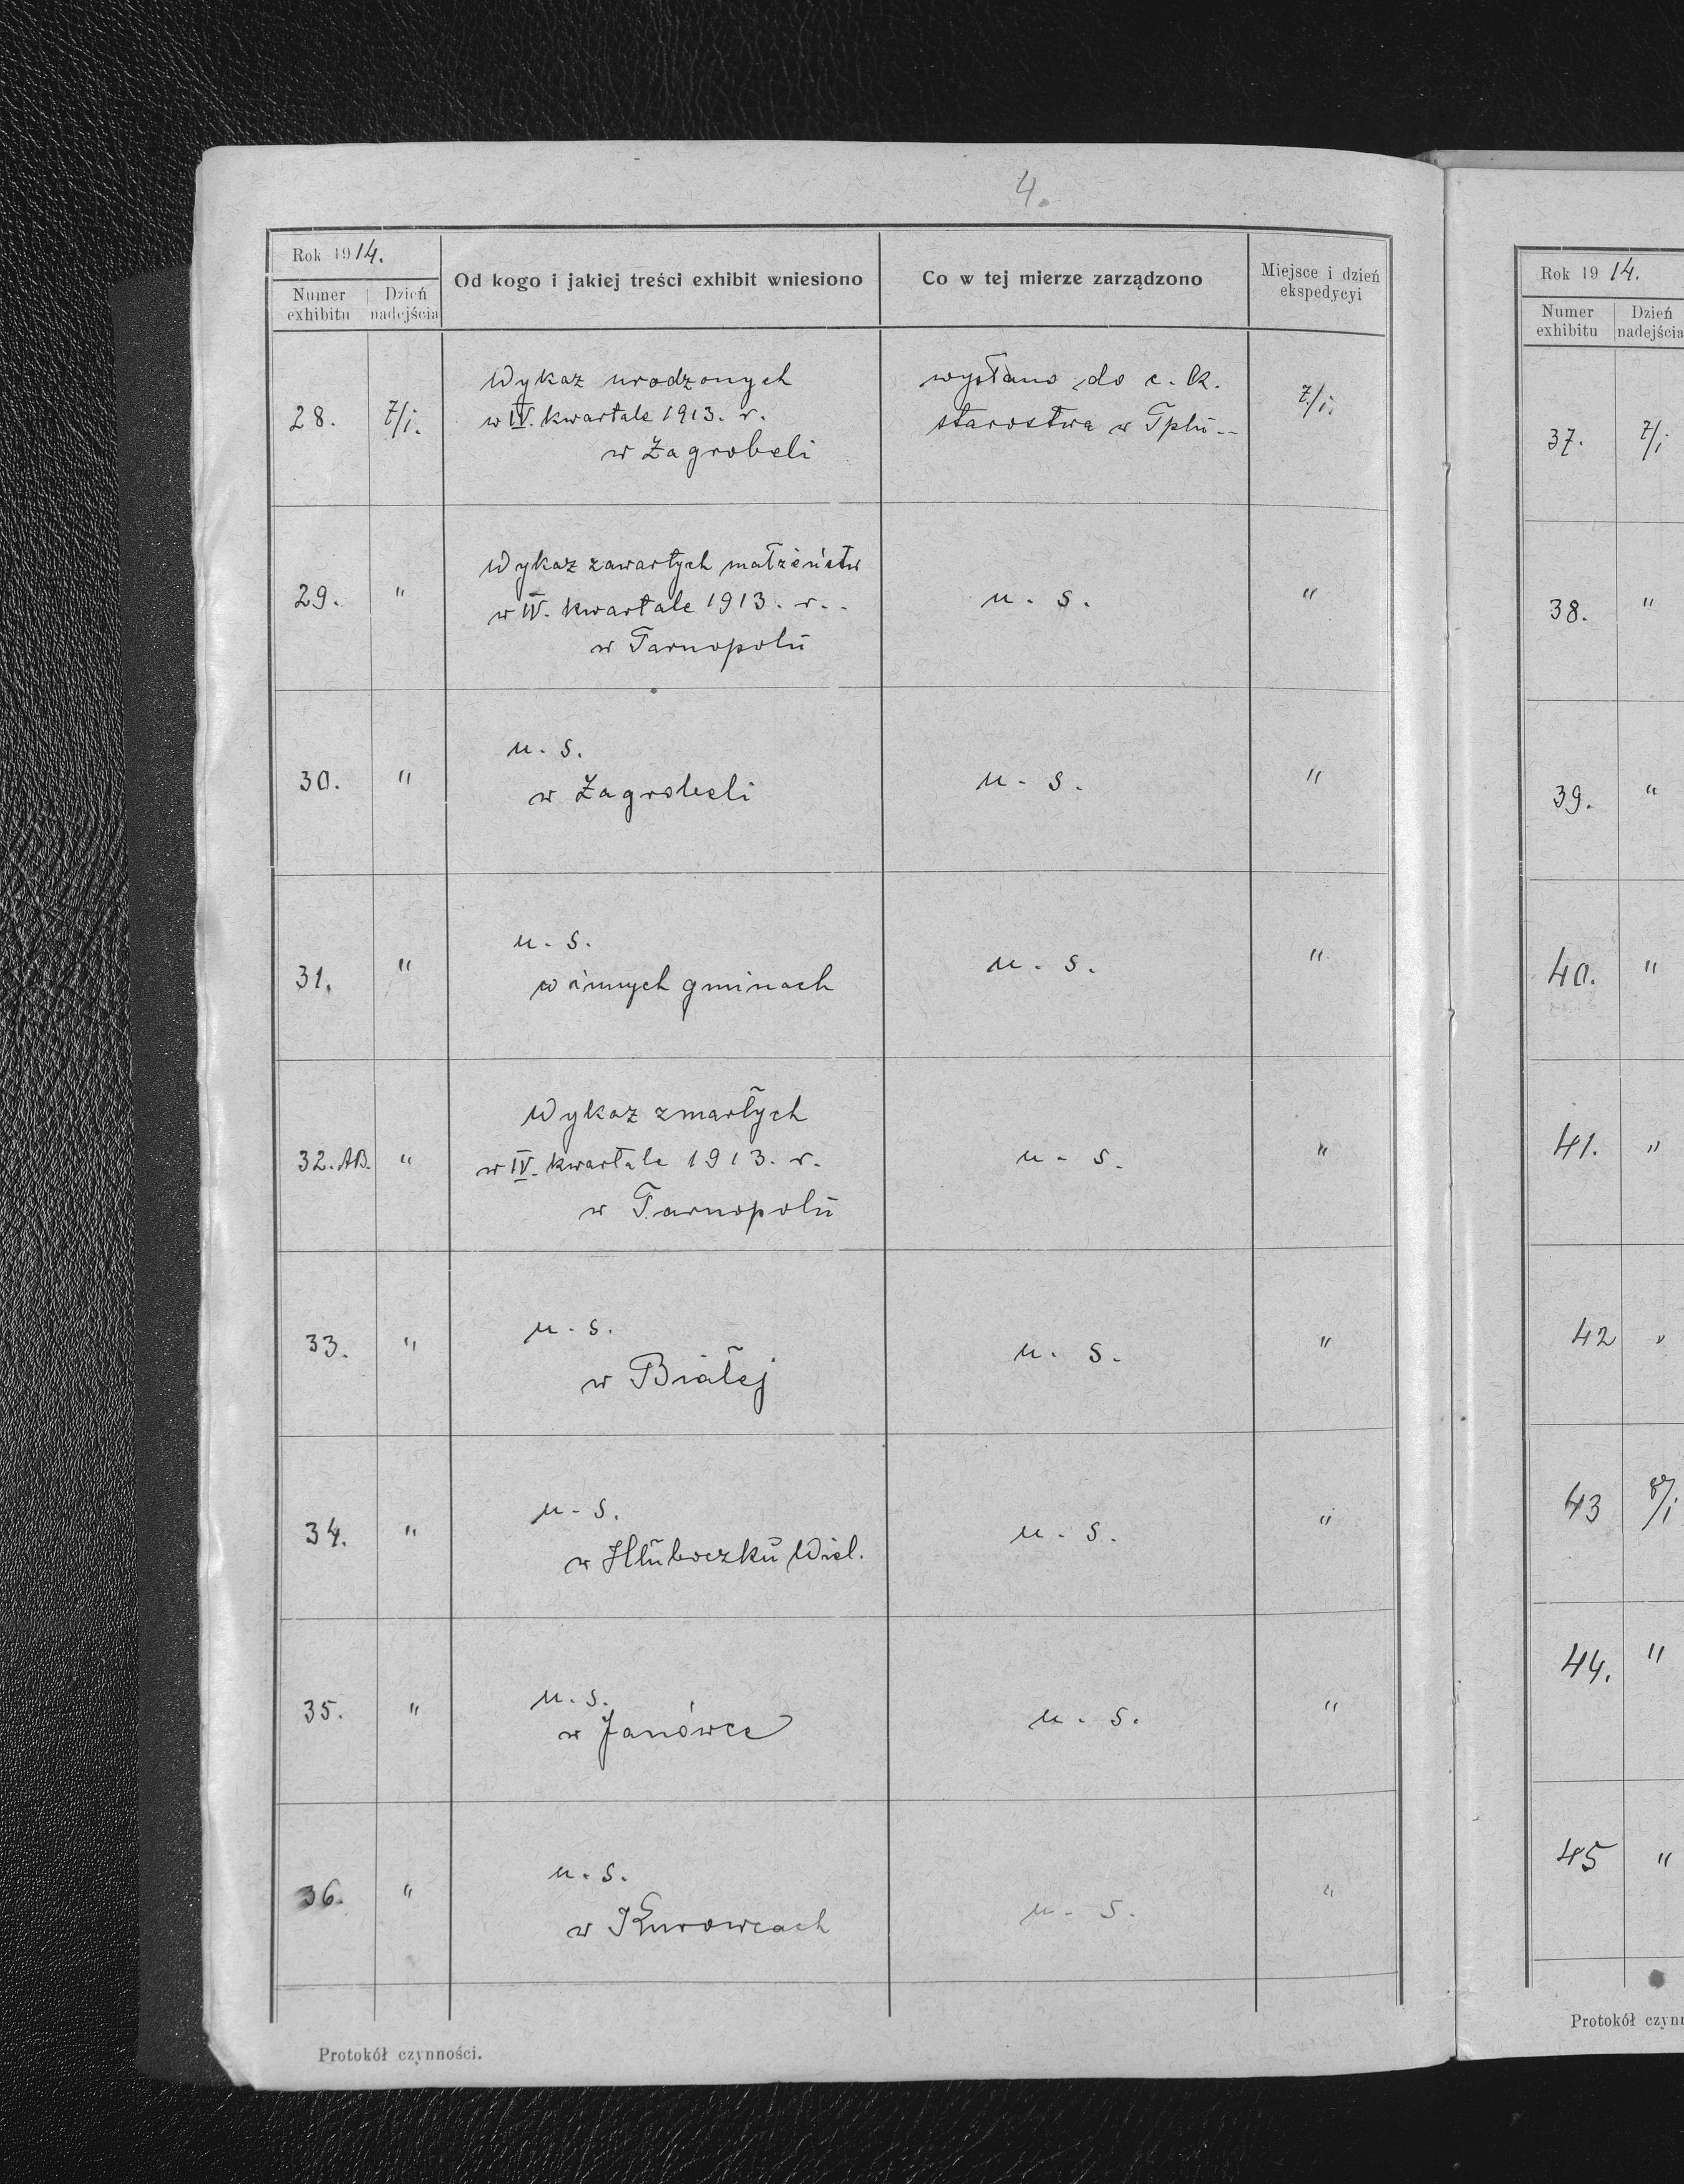 4.
Rok 1914.
Numer exhibitu
Dzień nadejścia
Od kogo i jakiej treści exhibit wniesiono
Co w tej mierze zarządzono
Miejsce i dzień ekspedycyi
28. 7/i. Wykaz urodzonych wysłano do c. k. 7/i.
w IV. kwartale 1913. r. starostwa w Tplu--
w Zagrobeli
29. " Wykaz zawartych małżeństw
w IV. kwartale 1913. r.. u. s. "
w Tarnopolu
30. " u. s. u - s. "
w Zagrobeli
31. " u. s. u. s. "
w innych gminach
Wykaz zmarłych
32. AB. " w IV. kwartale 1913. r. u - s. "
w Tarnopolu
33. " u - s. u. s. "
w Białej
34. " u - s. u. s. "
w Hłuboczku Wiel.
35. " u. s. u. s. "
w Janówce
36. " u. s. u - s. "
w Kurowcach
Protokół czynności.
Rok 1914.
Numer exhibitu
Dzień nadejścia
37. 7/i
38. "
39. "
40. "
41. "
42 "
43 8/i
44. "
45 "
Protokół czynn